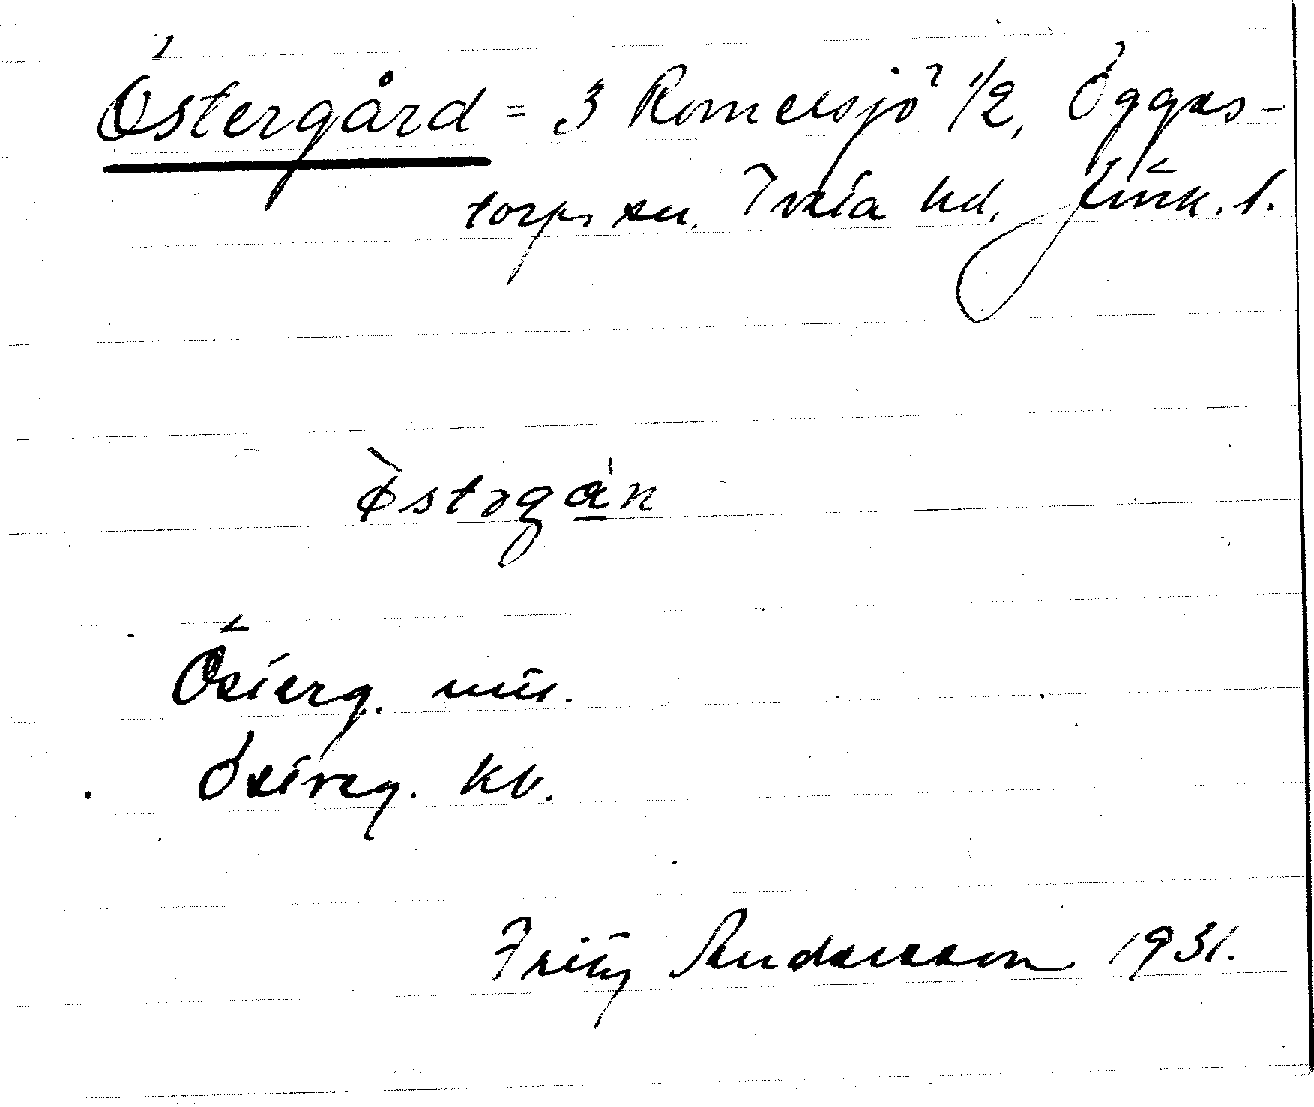 Östergård = 3 Romelsjö 1/2, Ögges-
torps sn. Tveta hd. Jönk. l.
Österg. mis.
Österg. kb.
Fritz Andersson 1931.